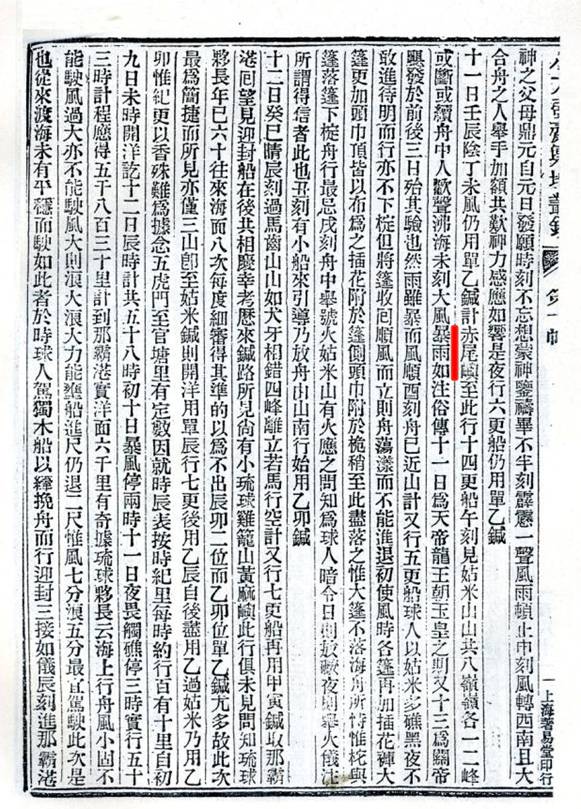 小方壺齋輿地叢鈔 第十帙
上海著易堂印行
神之父母鼎元自元日發願時刻不忘想蒙神鑒禱畢不半刻霹靂一聲風雨頓止申刻風轉西南且大
合舟之人舉手加額共歎神力感應如響是夜行六更船仍用單乙鍼
十一日壬辰陰丁未風仍用單乙鍼計赤尾嶼至此行十四更船午刻見姑米山山共八嶺嶺各一二峰
或斷或續舟中人歡聲沸海未刻大風暴雨如注俗傳十一日為天帝龍王朝玉皇之期又十三為關帝
颶發於前後三日殆其驗也然雨雖暴而風順酉刻舟已近山計又行五更船球人以姑米多礁黑夜不
敢進待明而行亦不下椗但將篷收回順風而立則舟蕩漾而不能進退初使風時各篷再加插花褲大
篷更加頭巾頂皆以布為之插花附於篷側頭巾附於桅梢至此盡落之惟大篷不落海舟所恃惟柁與
篷落篷下椗舟行最忌戌刻舟中舉號火姑米山有火應之問知為球人暗令日則放礟夜則舉火儀注
所謂得信者此也丑刻有小船來引導乃放舟由山南行始用乙卯鍼
十二日癸巳晴辰刻過馬齒山山如犬牙相錯四峰離立若馬行空計又行七更船再用甲寅鍼取那霸
港囘望見迎封船在後共相慶幸老歷來鍼路所見尚有小琉球雞籠山黃麻嶼此行俱未見問知琉球
夥長年已六十往來海面八次每度細審得其準的以為不出辰卯二位而乙卯位單乙鍼尤多故此次
最為簡捷而所見亦僅三山卽至姑米鍼則開洋用單辰行七更後用乙辰自後盡用乙過姑米乃用乙
卯惟紀更以香殊難為據念五虎門至官塘里有定數因就時辰表按時紀里每時約行百有十里自初
九日未時開洋訖十二日辰時計共五十八時初十日暴風停兩時十一日夜畏觸礁停三時實行五十
三時計程應得五千八百三十里計到那霸港實洋面六千里有奇據琉球夥長云海上行舟風小固不
能駛風過大亦不能駛風大則浪大浪大力能壅船進尺仍退二尺惟風七分浪五分最宜駕駛此次是
也從來渡海未有平穩而駛如此者於時球人駕獨木船以纖挽舟而行迎封三接如儀辰刻進那霸港